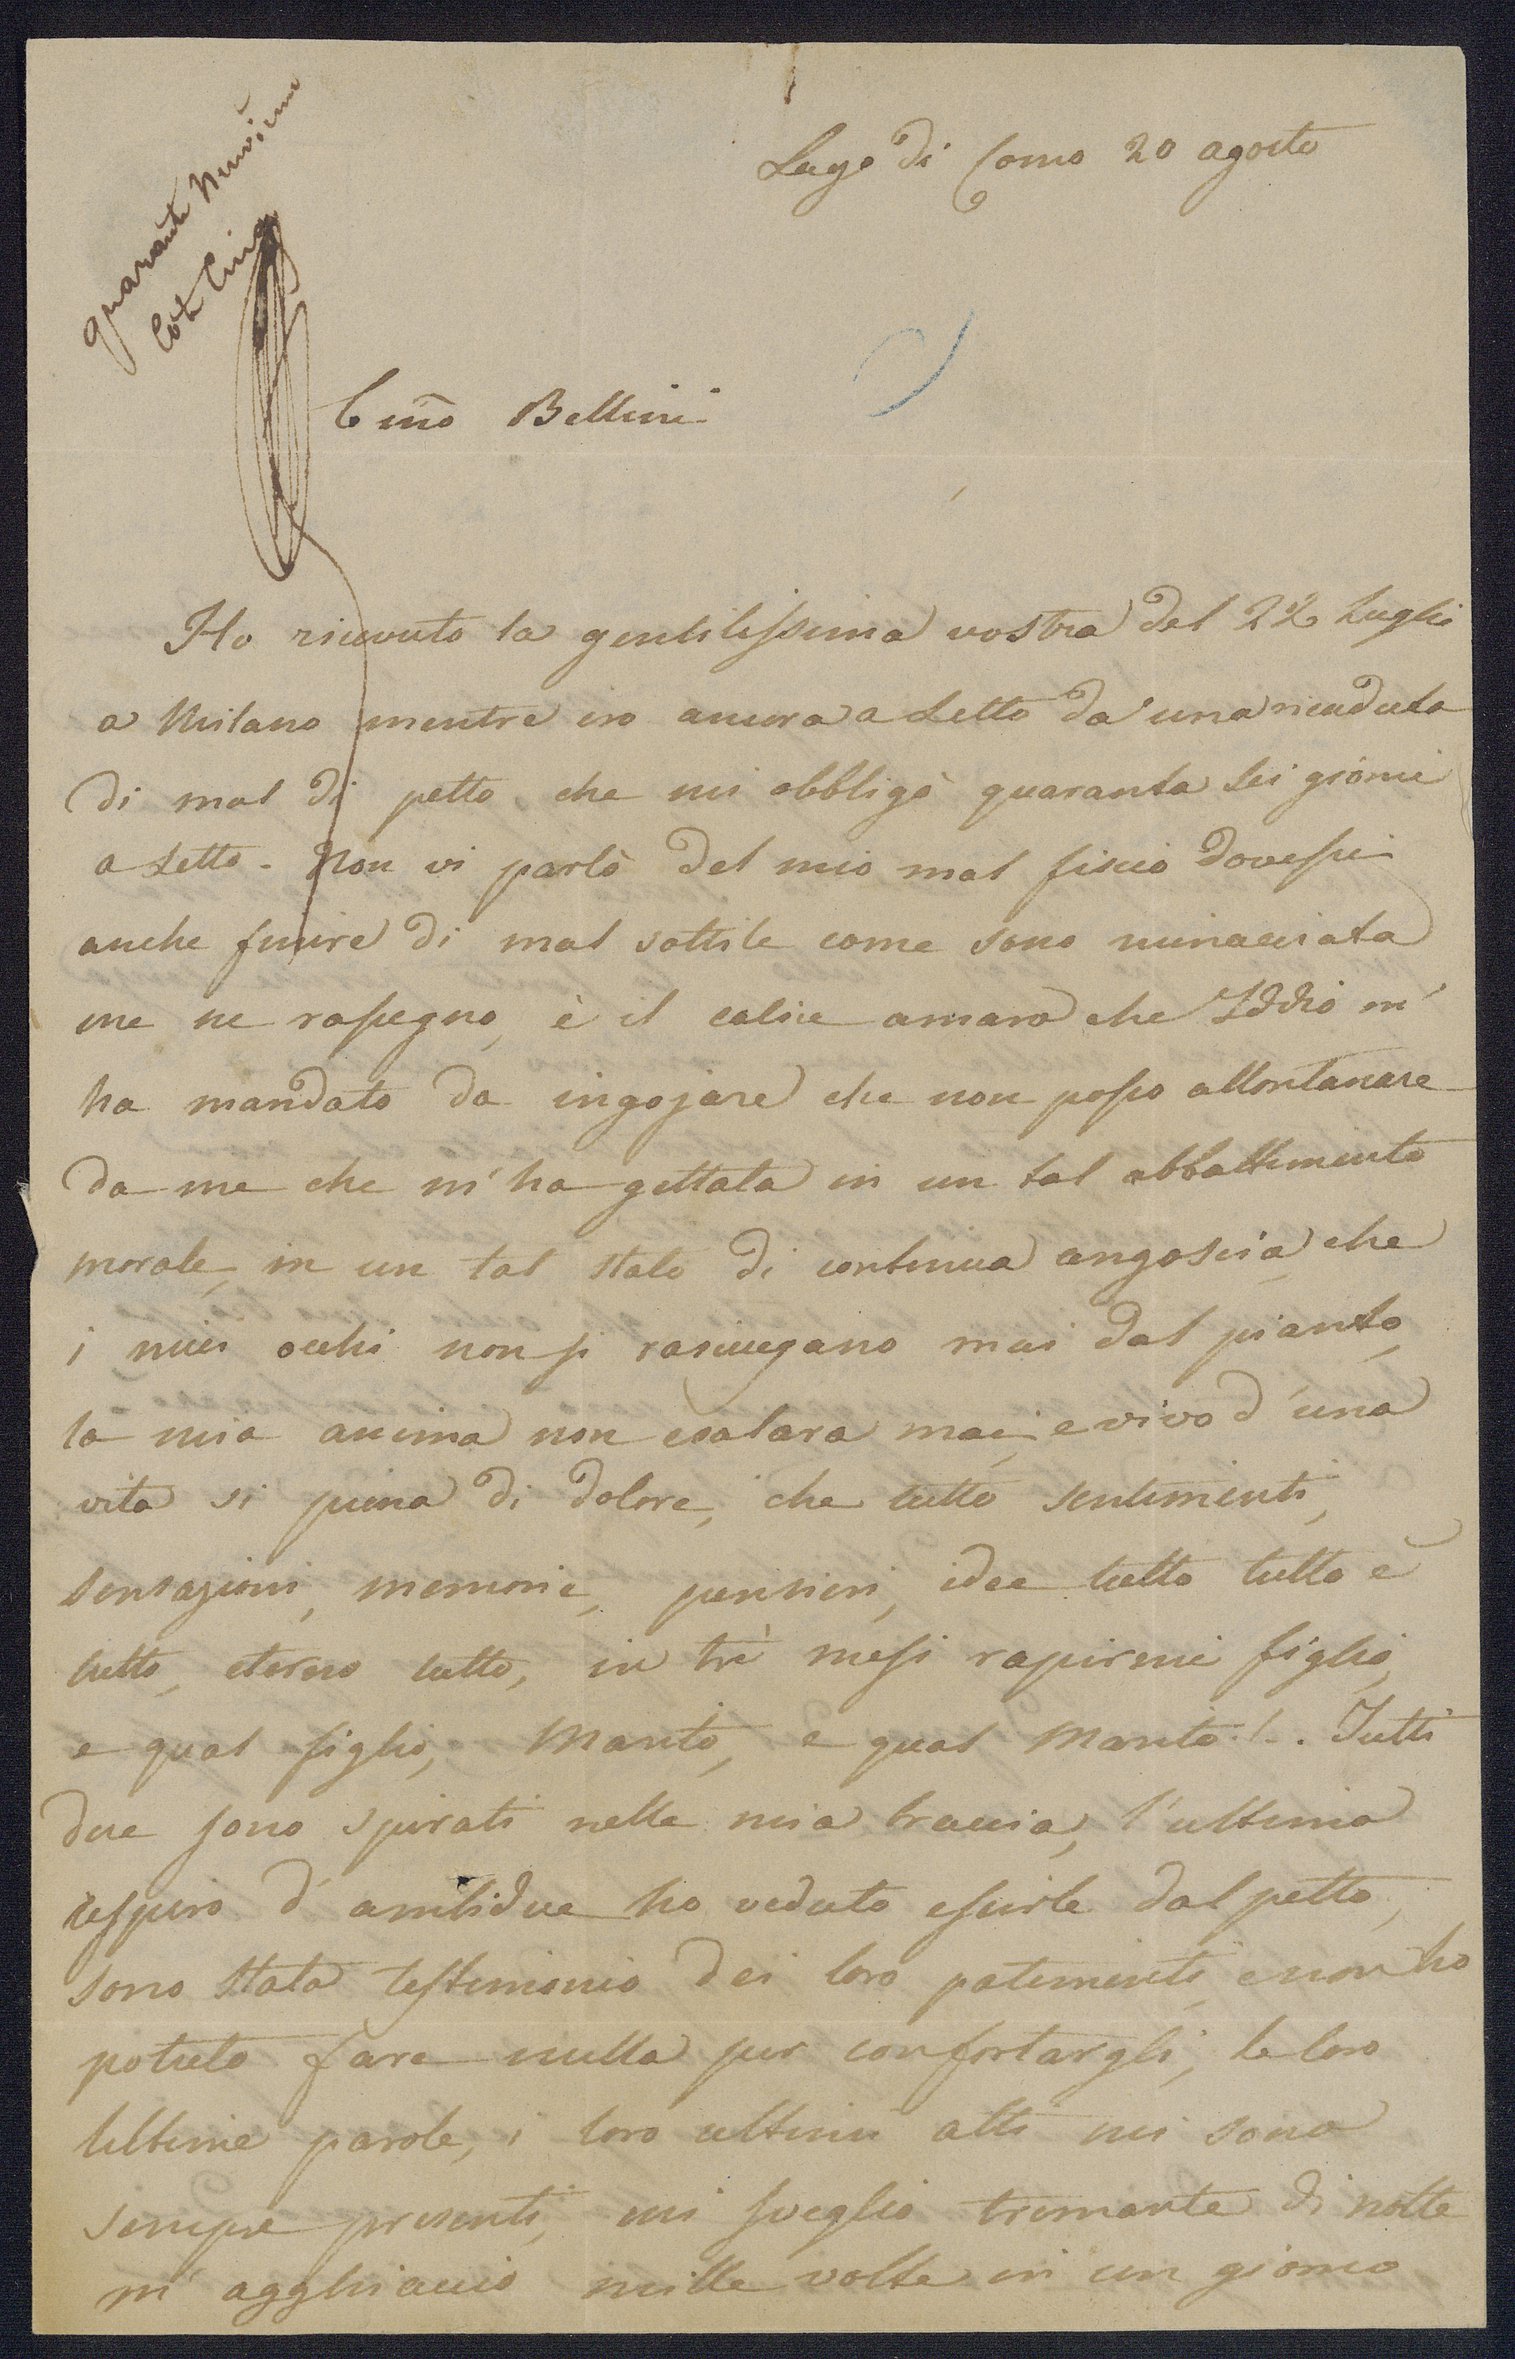 Lago di Como 20 agosto
Bellini
Ho ricevuto la gentilissima vostra del Luglio
a Milano mentre ero ancora a Letto da una ricaduta
di mal di petto, che mi obbligò quaranta sei giorni
a Letto. Non vi parlo del mio mal fisico dovessi
anche finire di mal sottile come sono minacciata
me ne rassegno, è il calice amaro che Iddio m'
ha mandato da ingojare che non posso allontanare
da me che m'ha gettata in un tal abbattimento
morale, in un tal stato di continua angoscia, che
i miei occhi non si rasciugano mai dal pianto,
la mia anima non esalara mai, e vivo d'una
vita si piena di dolore, che tutto sentimenti,
sensazioni, memorie, pensieri, idee tutto tutto è
lutto, eterno lutto, in trè mesi rapirmi figlio,
e qual figlio, Marito, e qual Marito!.. Tutti
due sono spirati nelle mia braccia, l'ultimo
respiro d'ambidue ho veduto escirle dal petto,
sono stata testimonio dei loro patimenti, e non ho
potuto fare nulla per confortargli, le loro
ultime parole, i loro ultimi atti mi sono
sempre presenti, mi sveglio tremante di notte
m'agghiaccio mille volte in un giorno